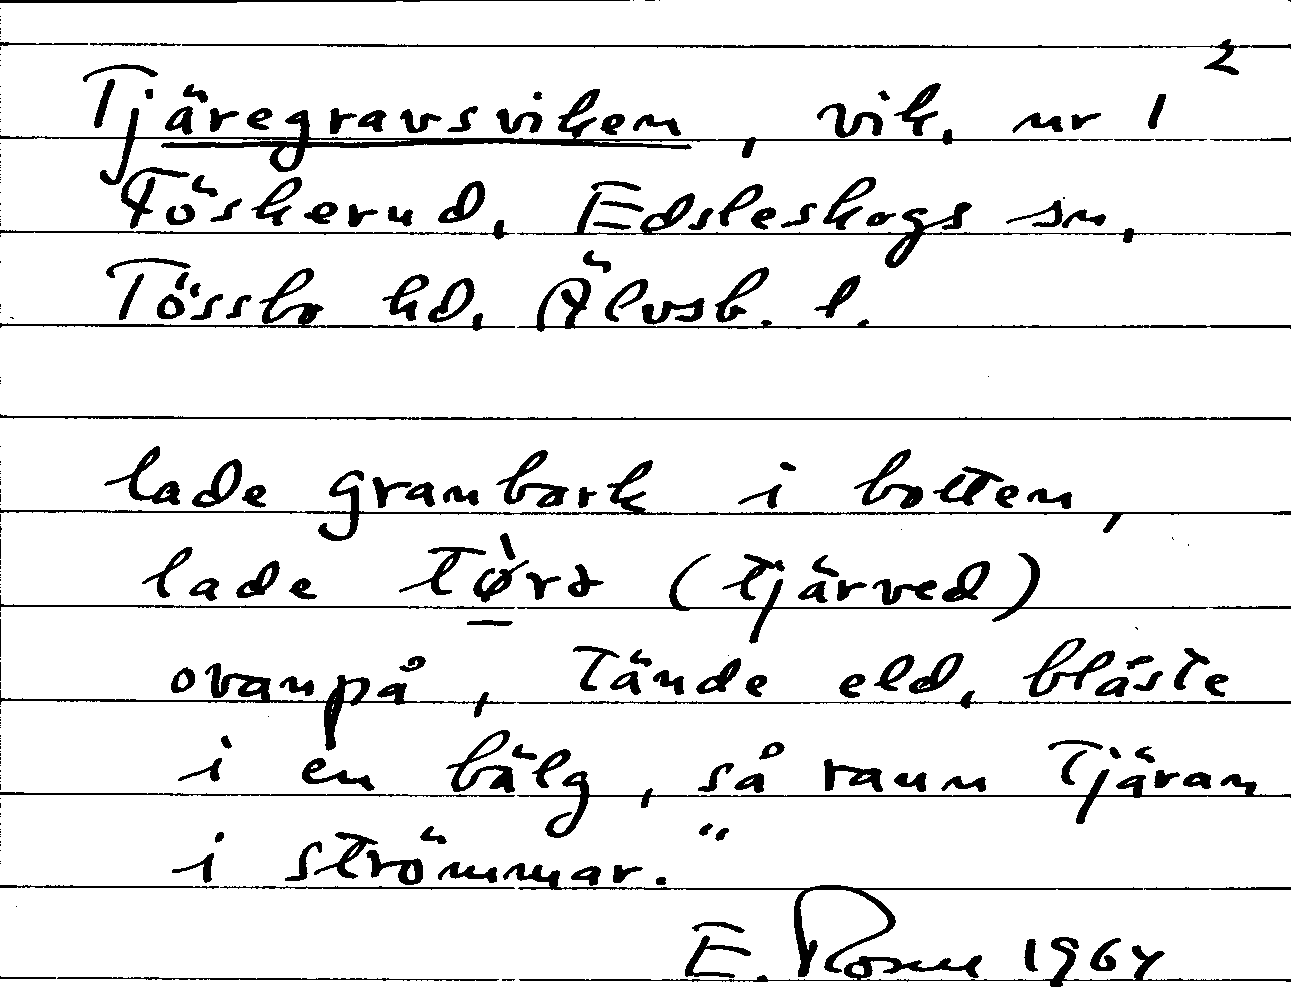 2
Tjäregravsviken, vik, nr 1
Töskerud, Edsleskogs sn,
Tössbo hd, Älvsb. l.
lade granbark i botten,
lade tø̀rə (tjärved)
ovanpå, tände eld, blåste
i en bälg, så rann tjäran
i strömmar."
E. 1964